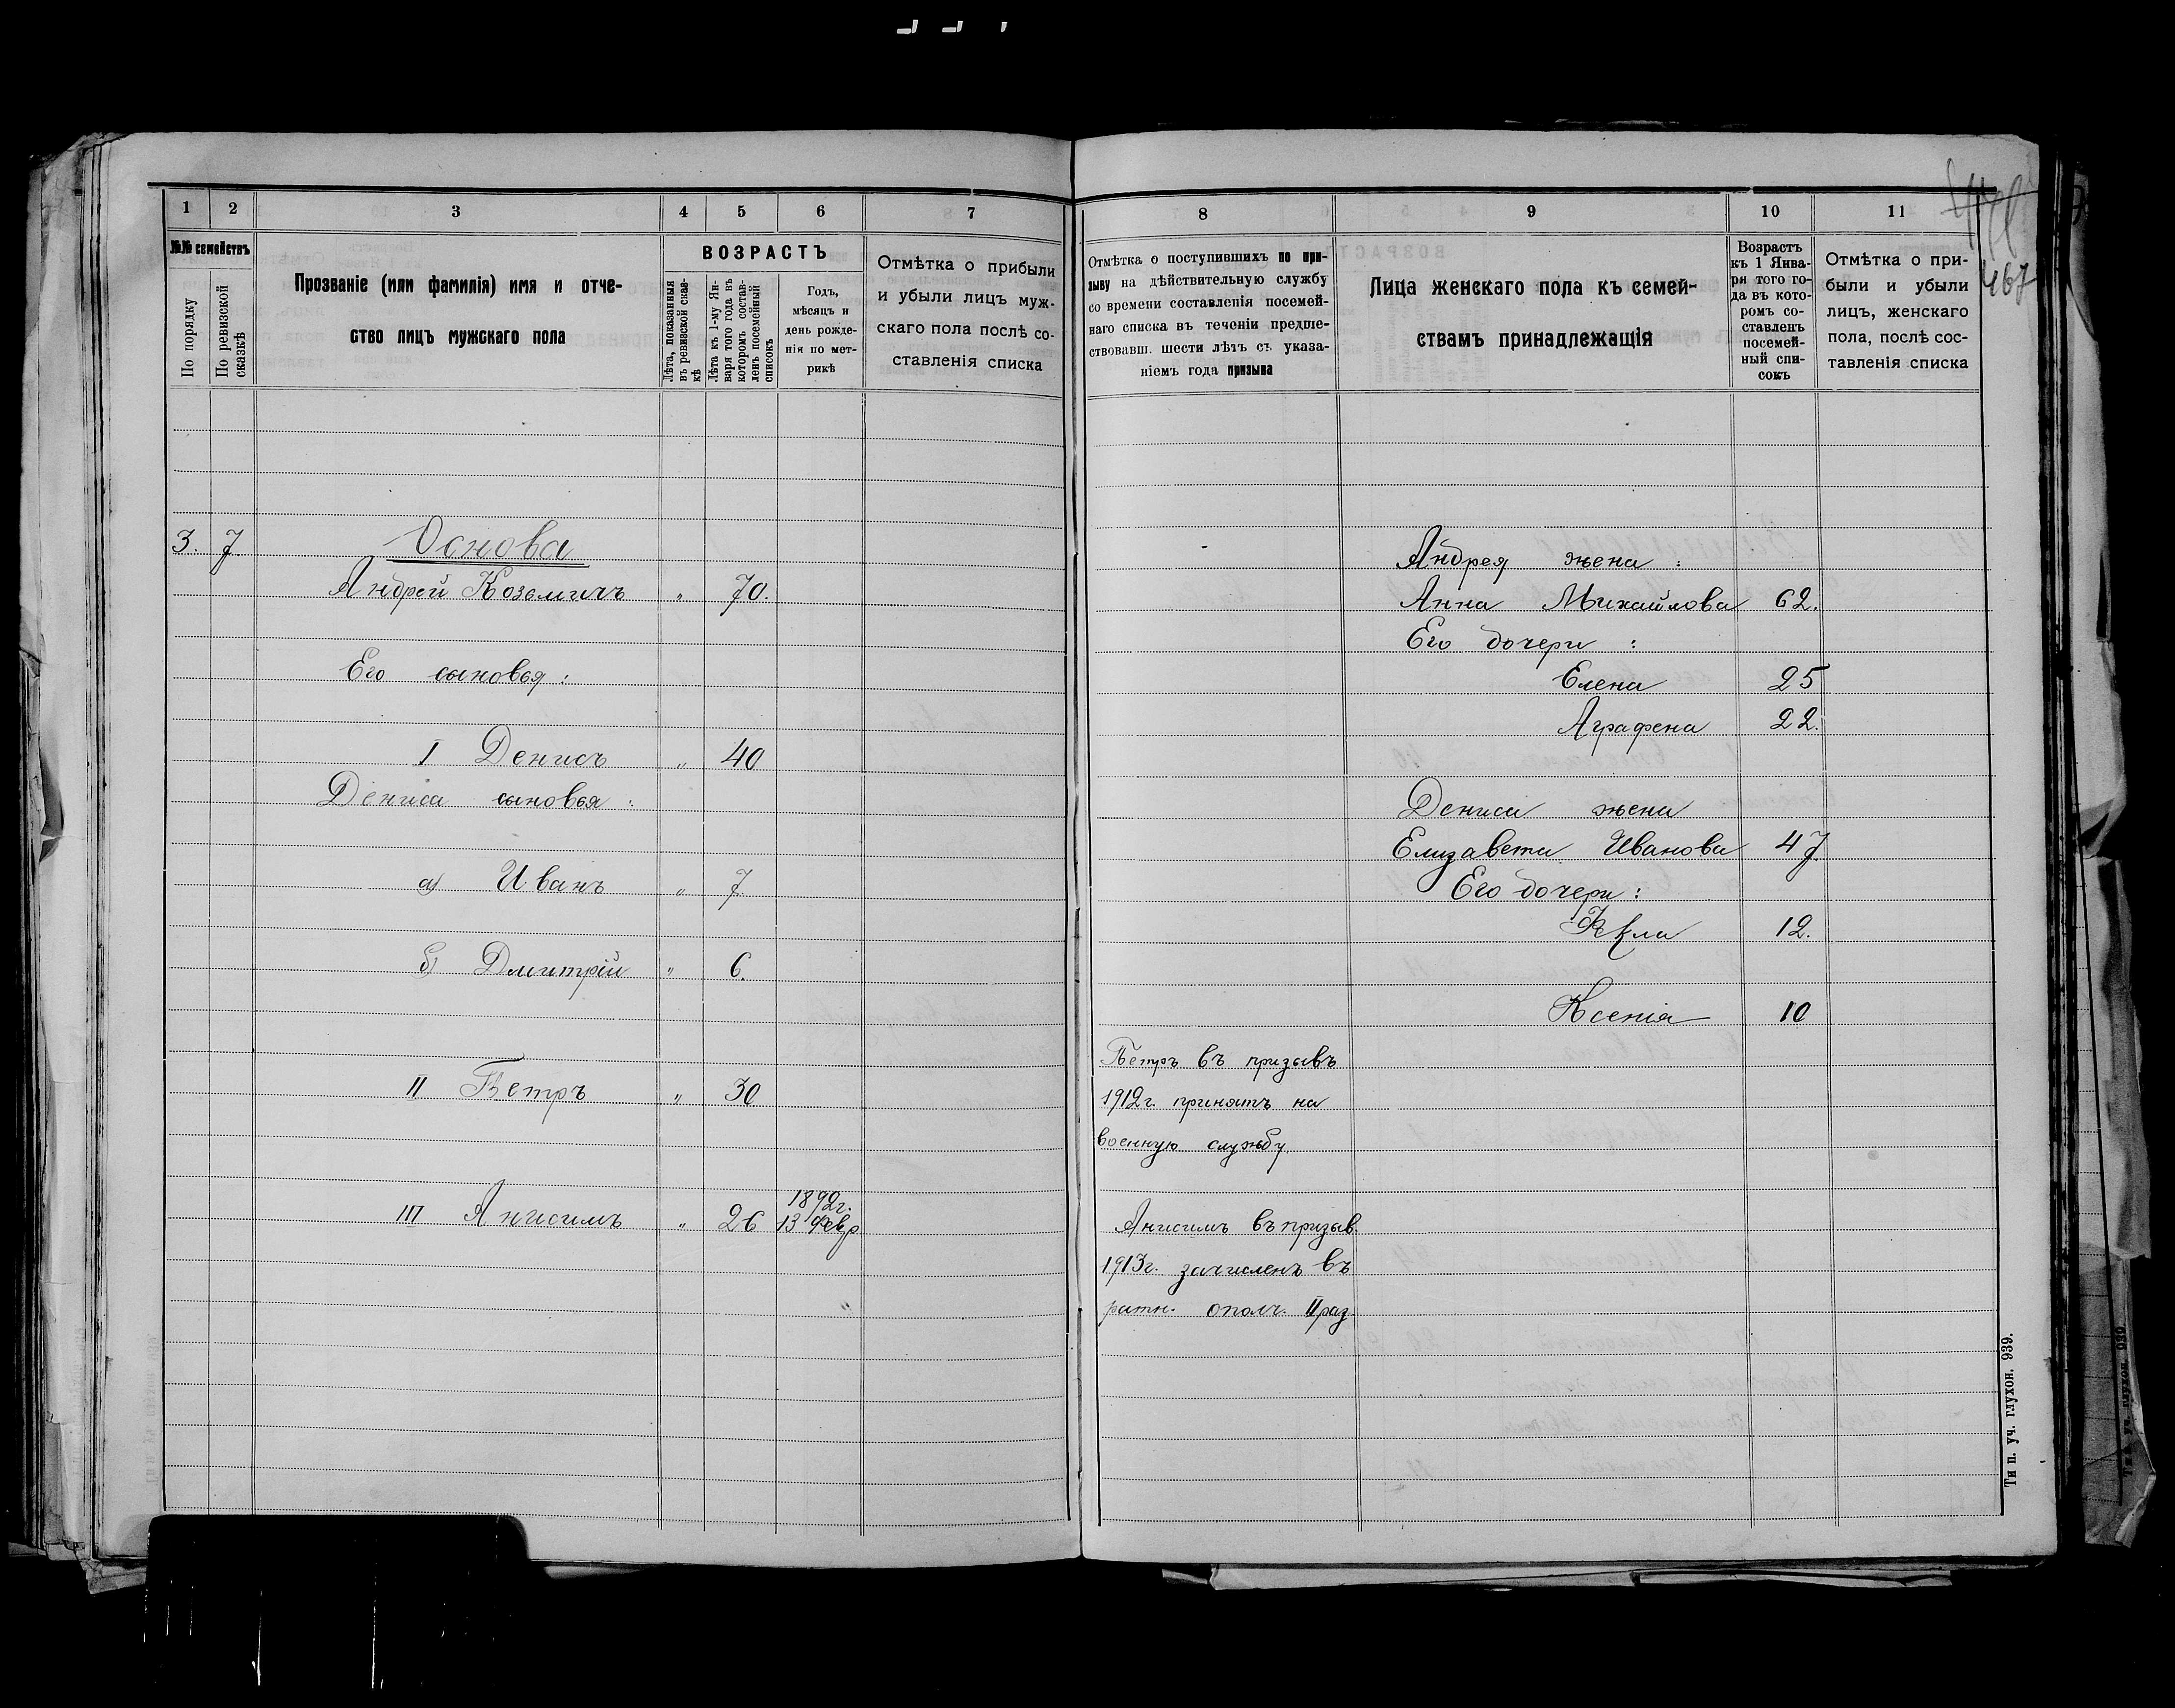 1
2
3
4
5
6
7
№№ семействъ
По порядку
По ревизской сказкѣ
Прозваніе (или фамилія) имя и отче-
ство лицъ мужскаго пола
ВОЗРАСТЪ
Лѣта, показанныя
въ ревизской сказ-
кѣ
Лѣта къ 1-му Ян-
варя того года въ
которомъ состав-
ленъ посемейный
списокъ
Годъ,
мѣсяцъ и
день рожде-
нія по мет-
рикѣ
Отмѣтка о прибыли
и убыли лицъ муж-
скаго пола послѣ со-
ставленія списка
3. 7.
Основа
Андрей Козьмичъ „ 70.
Его сыновья:
I Денисъ „ 40
Дениса сыновья:
а) Иванъ „ 7.
б) Дмитрій „ 6.
II Петръ „ 30
III Анисимъ „ 26 1892г.
13 февр
8
9
10
11
467
Отмѣтка о поступившихъ по при-
зыву на дѣйствительную службу
со времени составленія посемей-
наго списка въ теченіи предше-
ствовавш. шести лѣтъ съ указа-
ніемъ года призыва
Лица женскаго пола къ семей-
ствамъ принадлежащія
Возрастъ
къ 1 Янва-
ри того го-
да въ кото-
ромъ со-
ставленъ
посемей-
ный спи-
сокъ
Отмѣтка о при-
были и убыли
лицъ, женскаго
пола, послѣ сос-
тавленія списка
Андрея жена:
Анна Михайлова 62.
Его дочери:
Елена 25
Аграфена 22.
Дениса жена
Елизавета Иванова 47
Его дочери:
Фекла 12.
Ксенія 10
Петръ въ призывъ
1912г. принятъ на
военную службу.
Анисимъ въ призыв.
1913г. зачисленъ въ
ратн. ополч. II раз.
Тип. уч. глухон. 939.